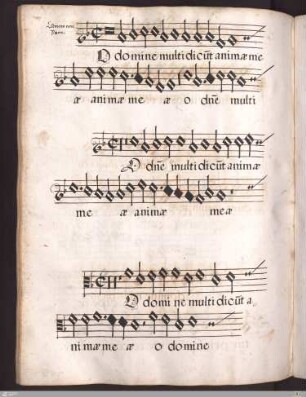 O domine multi dicũt animæ me
æ animæ me æ o dñe multi
O dñe multi dicũt animæ
me æ animæ meæ
O domi ne multi dicũt a
nimæ me æ o domine